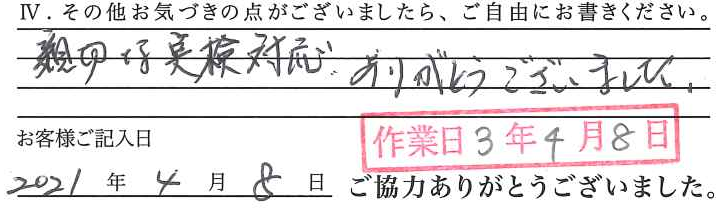 Ⅳ．その他お気づきの点がございましたら、ご自由にお書きください。
親切な実検対応ありがとうございました。
お客様ご記入日
作業日3年4月8日
2021年4月8日
ご協力ありがとうございました。